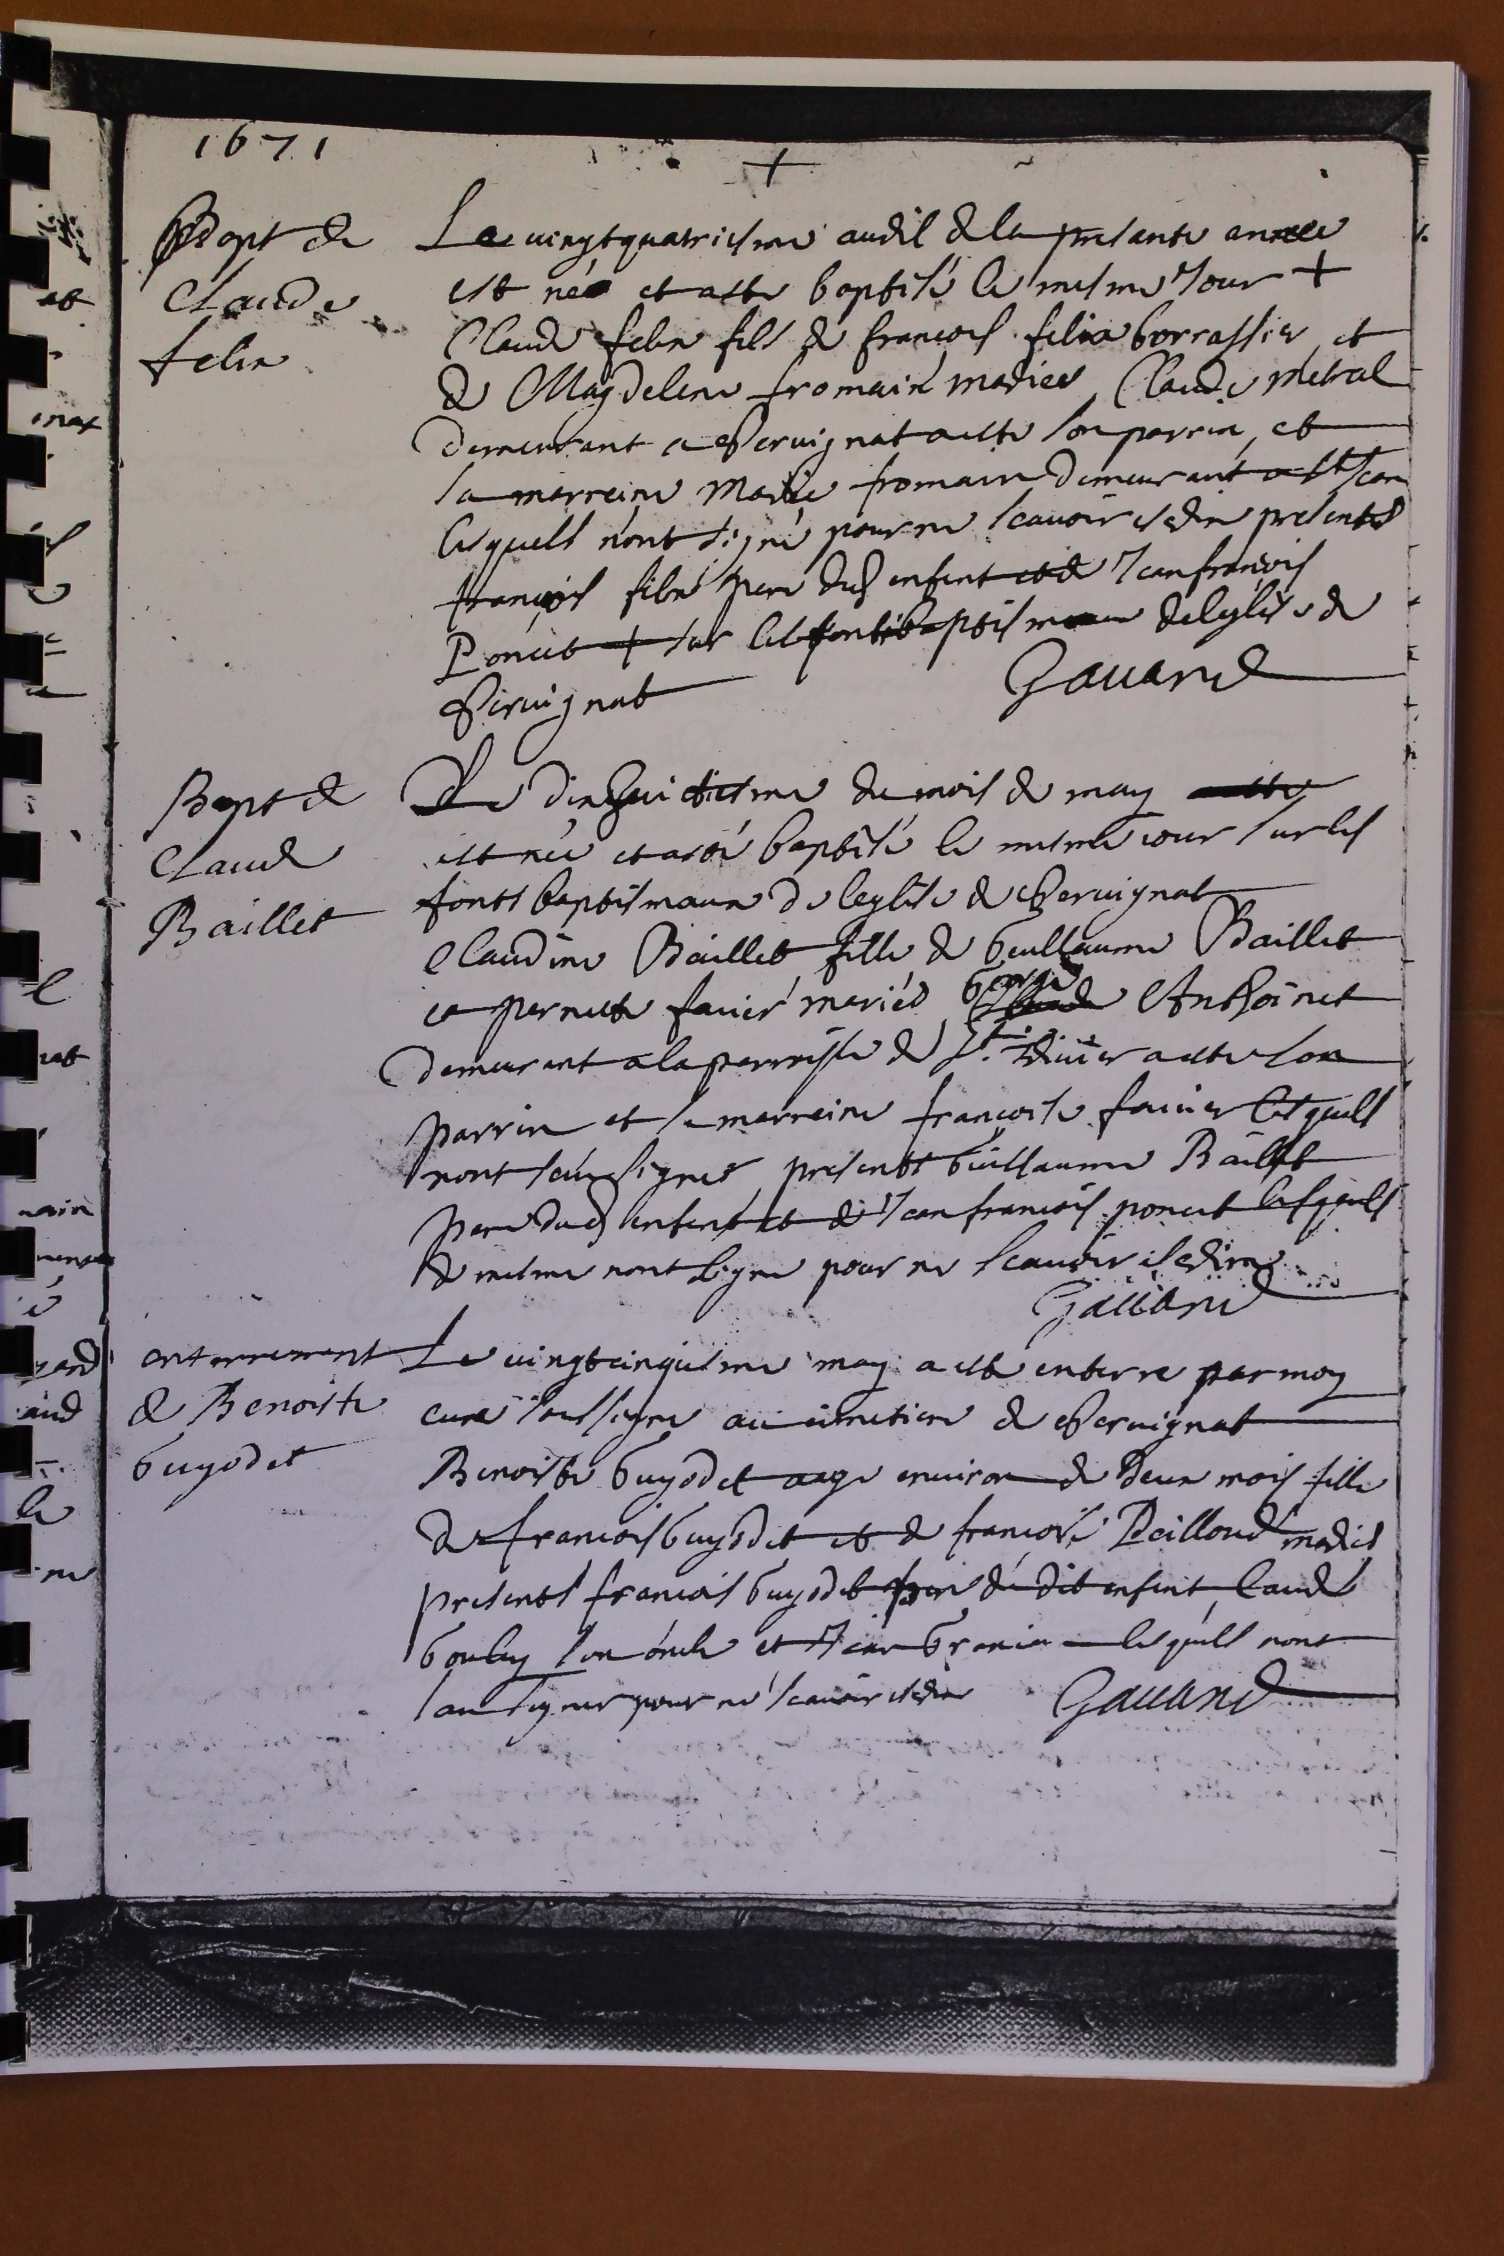 1671
+
Bapt de
Claude
felin
Le vingtquatriesme avril de la presante année
est né et a esté baptisé le mesme Jour +
Claude felin fils de françois felin borrassier et
de Magdelene fromain mariés Claude metral
demeurant a Servignat a esté son parrin et
sa marreine Marie fromain demeurant a St Jean
lesquels n'ont signé pour ne scavoir et dire presents
françois felin pere dud enfant et de Jean françois
Poncet + sur les fonts baptismaux de leglise de
Servignat Gavand
Bapt de
Claude
Baillet
Le dixhuictiesme du mois de may
est née et a esté baptisé le mesme iour sur les
fonts baptismaux de leglise de Servignat
Claudine Baillet fille de Guillaume Baillet
et pernette favier mariés George Anthoinet
demeurant a la parroisse de St. Didier a esté son
parrin et sa marreine françoise favier lesquels
nont sceu signer presents Guillaume Baillet
pere dud enfant et de Jean francois poncet lesquels
de mesme nont signe pour ne scavoir
Gavand
enterrement
de Benoiste
Guyodet
Le vingtcinquiesme may a este enterre par moy
curé soussigne au cimetiere de Servignat
Benoiste Guyodet aage environ de deux mois fille
de francois Guyodet et de françoise Pailloud mariés
presents francois Guyodet pere dudit enfant Claude
Gouley son oncle et Jean Granier lesquels nont
sceu signer pour ne scavoir Gavand